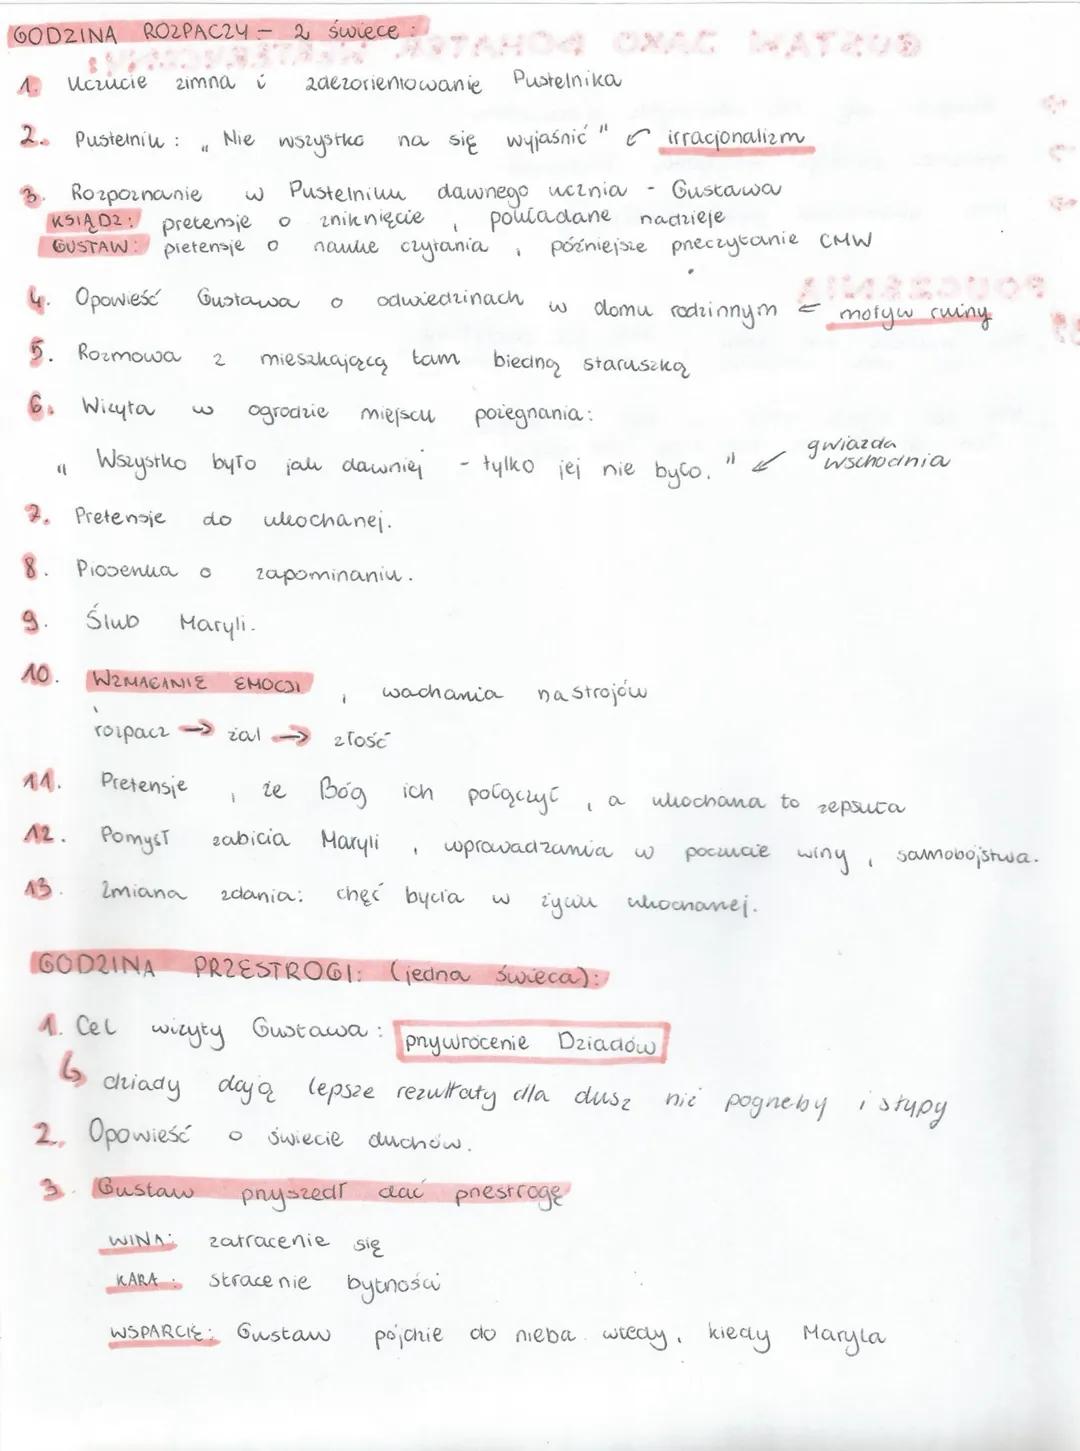 GODZINA ROZPACZY - 2 świece:
1. Uczucie zimna i zdezorientowanie Pustelnika
2. Pustelnik: „Nie wszystko na się wyjaśnić" ← irracjonalizm
3. Rozpoznanie w Pustelniku dawnego ucznia - Gustawa
KSIĄDZ: pretensje o zniknięcie, pokładane nadzieje
GUSTAW: pretensje o naukę czytania, późniejsze przeczytanie CMW
4. Opowieść Gustawa o odwiedzinach w domu rodzinnym ← motyw ruiny
5. Rozmowa z mieszkającą tam biedną staruszką
6. Wizyta w ogrodzie miejscu pożegnania:
„Wszystko było jak dawniej - tylko jej nie było." ← gwiazda wschodnia
7. Pretensje do ukochanej.
8. Piosenka o zapominaniu.
9. Ślub Maryli.
10. WZMAGANIE EMOCJI, wachania nastrojów
rozpacz → żal → złość
11. Pretensje, że Bóg ich połączył, a ukochana to zepsuła
12. Pomysł zabicia Maryli, wprowadzania w poczucie winy, samobójstwa.
13. Zmiana zdania: chęć bycia w życiu ukochanej.
GODZINA PRZESTROGI: (jedna świeca):
1. Cel wizyty Gustawa: przywrócenie Dziadów
↳ dziady dają lepsze rezultaty dla dusz niż pogrzeby i stypy
2. Opowieść o świecie duchów.
3. Gustaw przyszedł dać przestrogę
WINA: zatracenie się
KARA: stracenie bytności
WSPARCIE: Gustaw pójdzie do nieba wtedy, kiedy Maryla